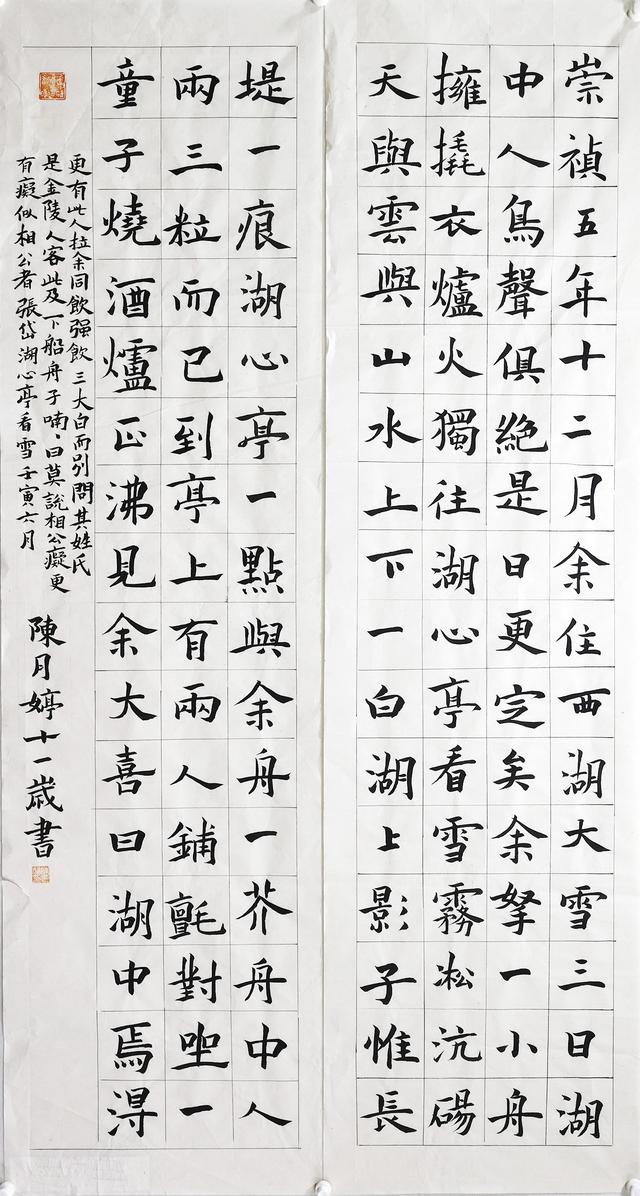 崇禎五年十二月余住西湖大雪三日湖
中人鳥聲俱絶是日更定矣余拏一小舟
擁撬衣爐火獨往湖心亭看雪霧凇沆碭
天與雲與山水上下一白湖上影子惟長
堤一痕湖心亭一點與余舟一芥舟中人
兩三粒而已到亭上有兩人鋪氈對坐一
童子燒酒爐正沸見余大喜曰湖中焉得
更有此人拉余同飲强飲三大白而别問其姓氏
是金陵人客此及下船舟子喃、曰莫說相公癡更
有癡似相公者張岱湖心亭看雪壬寅六月
陳月婷十一歲書